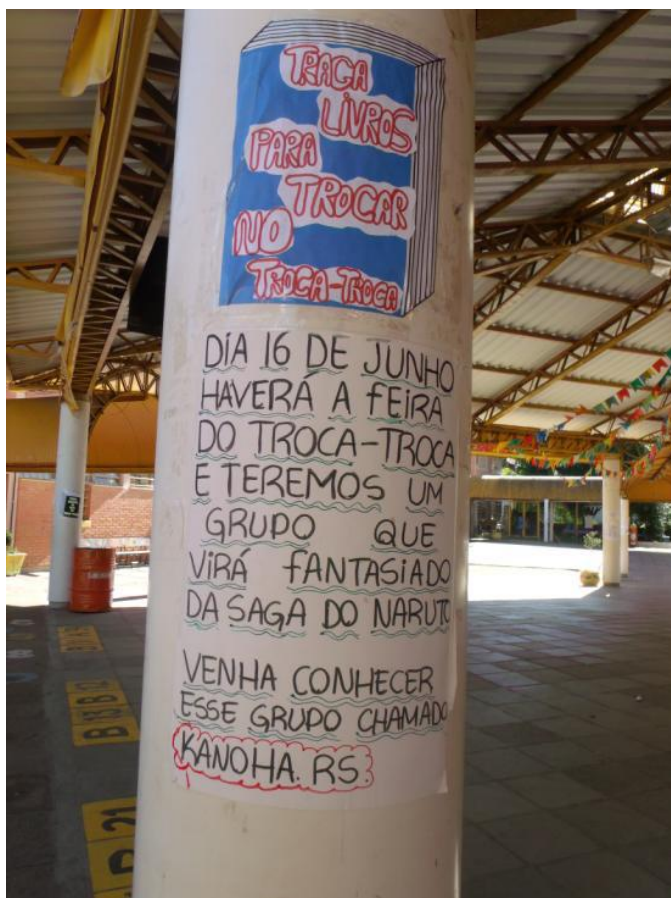 TRAGA
LIVROS
PARA
TROCAR
NO
TROCA-TROCA
DIA 16 DE JUNHO
HAVERÁ A FEIRA
DO TROCA-TROCA
E TEREMOS UM
GRUPO QUE
VIRÁ FANTASIADO
DA SAGA DO NARUTO
VENHA CONHECER
ESSE GRUPO CHAMADO
KANOHA. RS.
B 13 B 12
21